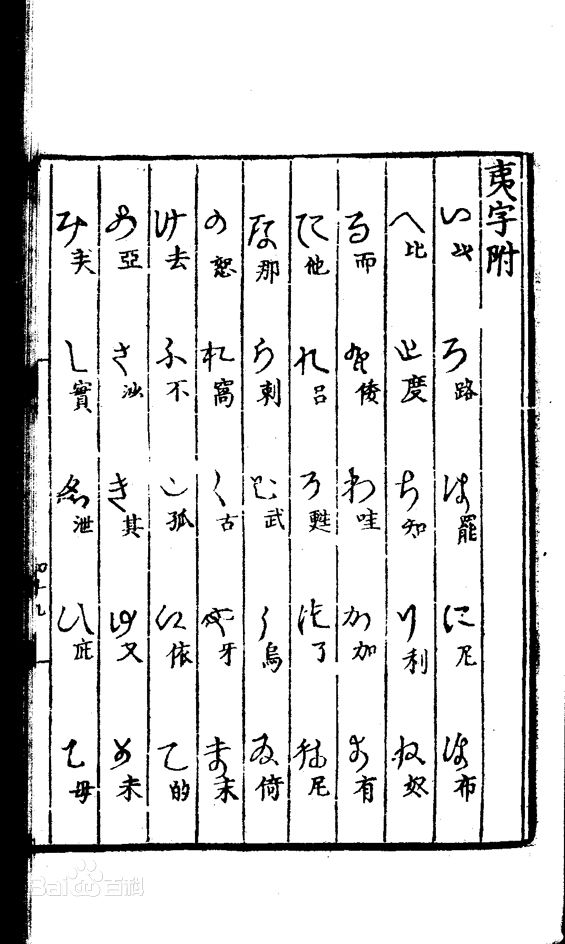 夷字附
い ろ路 は罷 に尼 ほ布
へ比 と度 ち知 り利 ぬ奴
る而 を倭 わ哇 か加 よ有
た他 れ呂 そ甦 つ了 ね尼
な那 ら剌 む武 う烏 ゐ倚
の怒 お窩 く古 や牙 ま末
け去 ふ不 こ孤 え依 て的
あ亞 さ沙 き其 ゆ又 め未
み美 し實 ゑ泄 ひ庇 も毋
Bai百科